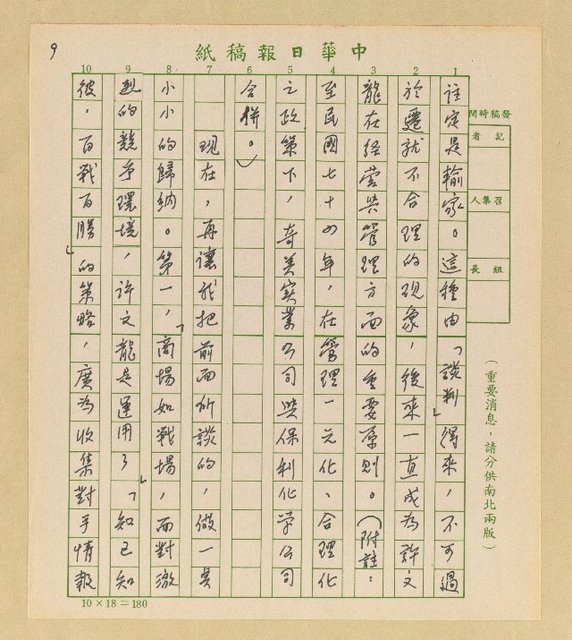 9
中華日報稿紙
1 2 3 4 5 6 7 8 9 10
發稿時間
記者
召集人
組長
(重要消息、請分供南北兩版)
註定是輸家。這種由「談判」得來,不可過
於遷就不合理的現象,後來一直成為許文
龍在經營與管理方面的重要原則。(附註:
至民國七十四年,在管理一元化、合理化
之政策下,奇美實業公司與保利化學公司
合併。)
現在,再讓我把前面所談的,做一些
小小的歸納。第一,「商場如戰場」,而對激
烈的競爭環境,許文龍是運用了「知己知
彼,百戰百勝」的策略,廣為收集對手情報
10×18=180